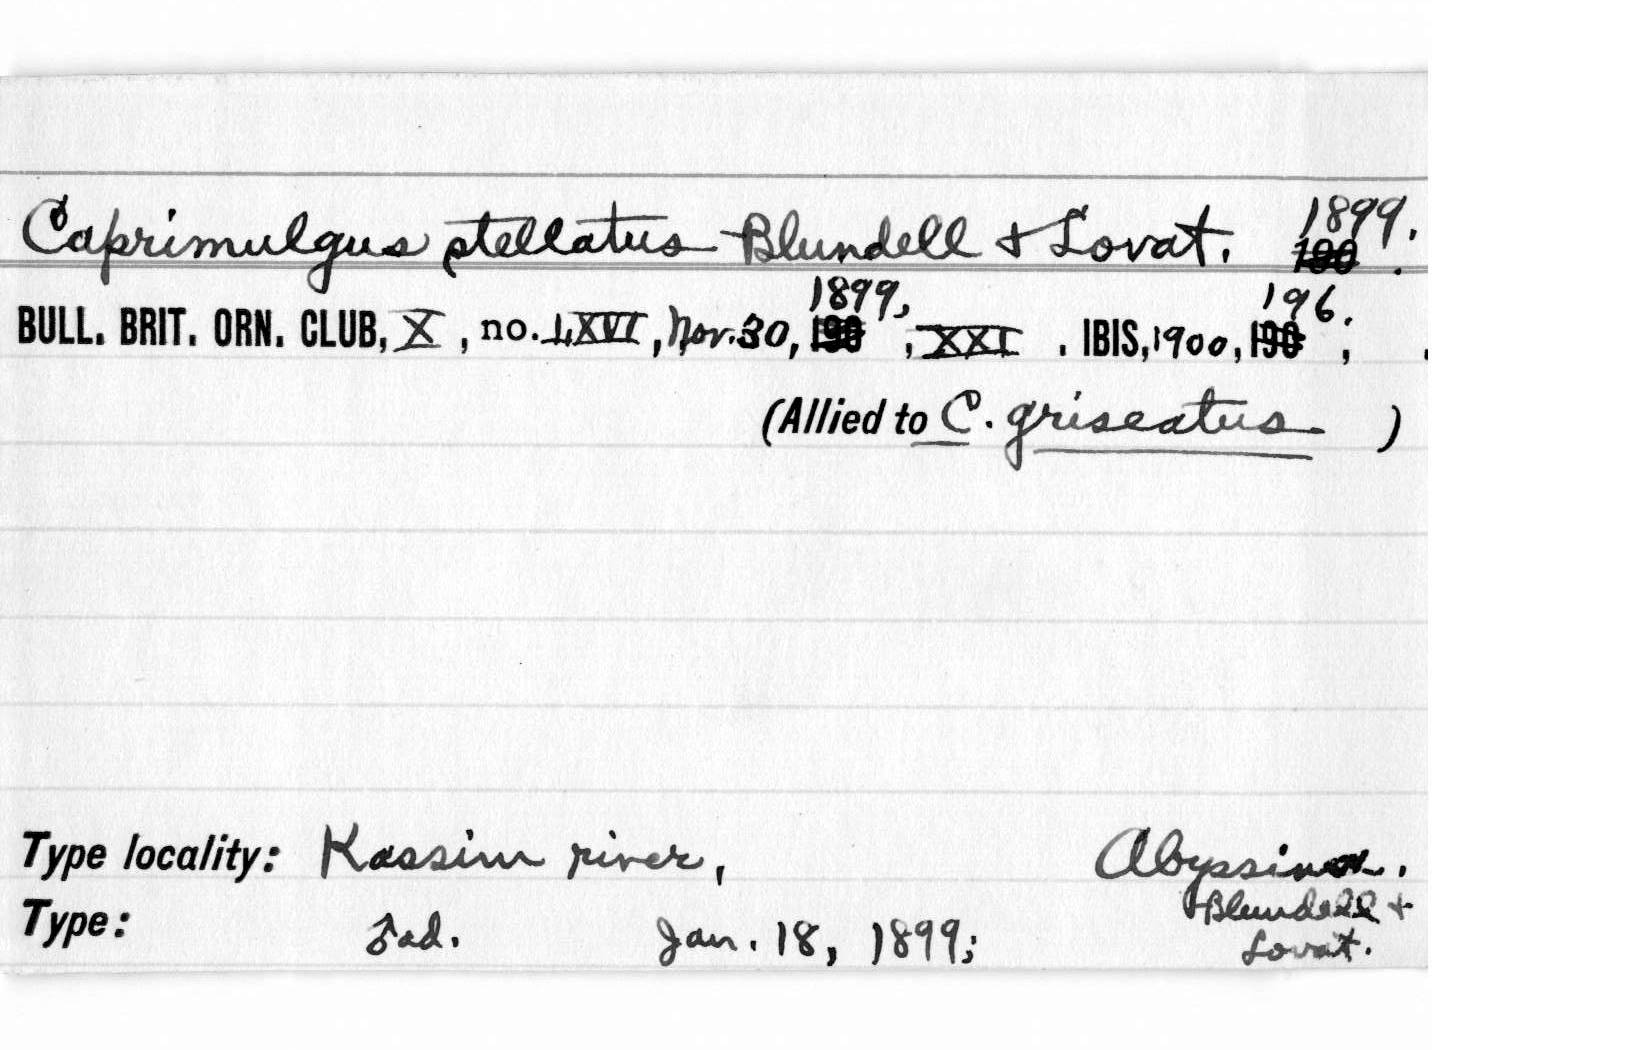 Caprimulgus stellatus Blundell & Lovat. 1899.
BULL. BRIT. ORN. CLUB, X, no. LXVI, Nov. 30, 1899, XXI. IBIS, 1900, 196.
(Allied to C. griseatus)
Type locality: Kassim river, Abyssinia.
Type: ad. Jan. 18, 1899; Blundell &
Lovat.